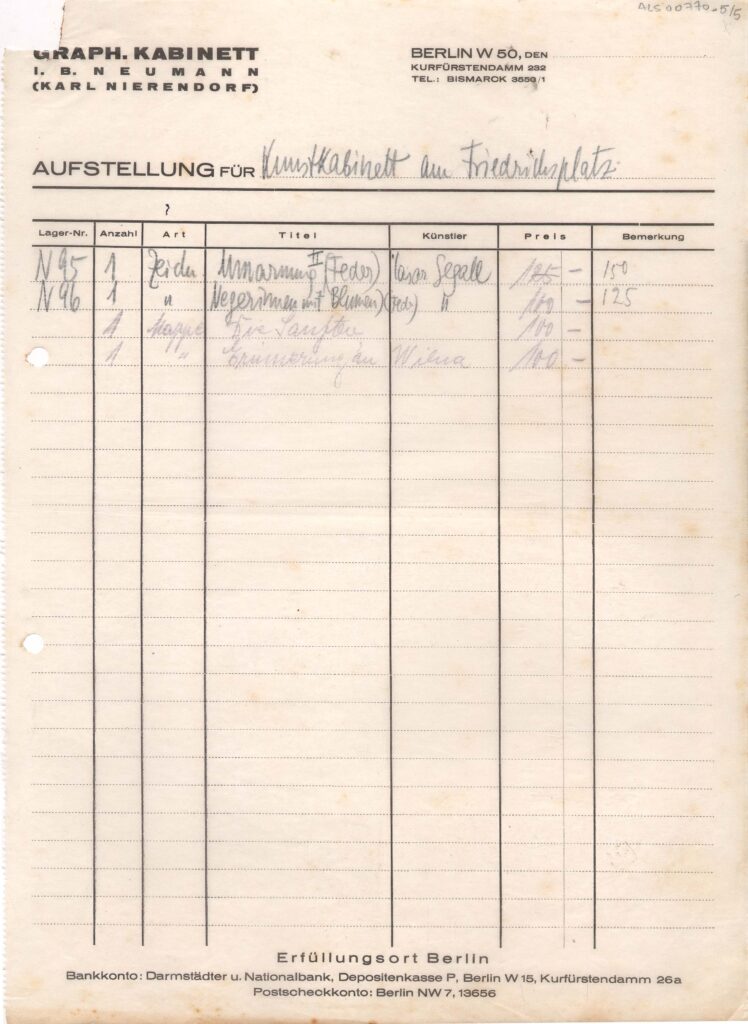 ALS 00770-5/5
GRAPH. KABINETT
I. B. NEUMANN
(KARL NIERENDORF)
BERLIN W 50, DEN
KURFÜRSTENDAMM 232
TEL.: BISMARCK 3650/1
AUFSTELLUNG FÜR Kunstkabinett am Friedrichsplatz
?
Lager-Nr. Anzahl Art Titel Künstler Preis Bemerkung
N 95 1 Umarmung II (Feder) Lasar Segall 125 — 150
N 96 1 " Negerinnen mit Blumen) (Feder) " 100 — 125
1 Mappe Die Sanfte 100 —
1 " Erinnerung an Wilna 100 —
Erfüllungsort Berlin
Bankkonto: Darmstädter u. Nationalbank, Depositenkasse P, Berlin W 15, Kurfürstendamm 26a
Postscheckkonto: Berlin NW 7, 13656